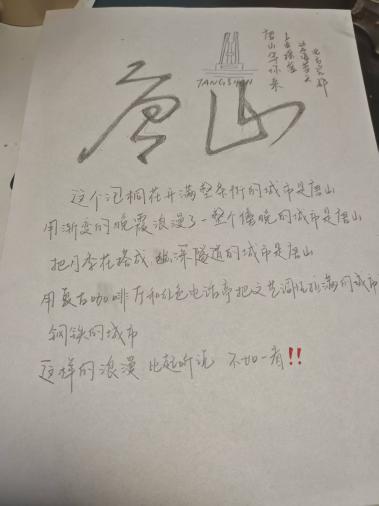 唐山
TANGSHAN
唐山等你来
这个泡桐花开满整条街的城市是唐山
用渐变的晚霞浪漫了一整个傍晚的城市是唐山
把月季花搭成幽深隧道的城市是唐山
用复古咖啡厅和红色电话亭把文艺调性拉满的城市
钢铁的城市
这样的浪漫 比起听说 不如一看!!